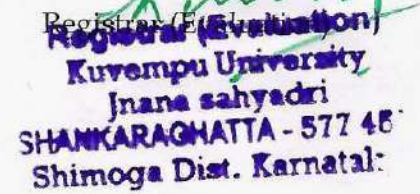 Registrar (Evaluation)
Registrar (Evaluation)
Kuvempu University
Jnana sahyadri
SHANKARAGHATTA - 577 45
Shimoga Dist. Karnatak